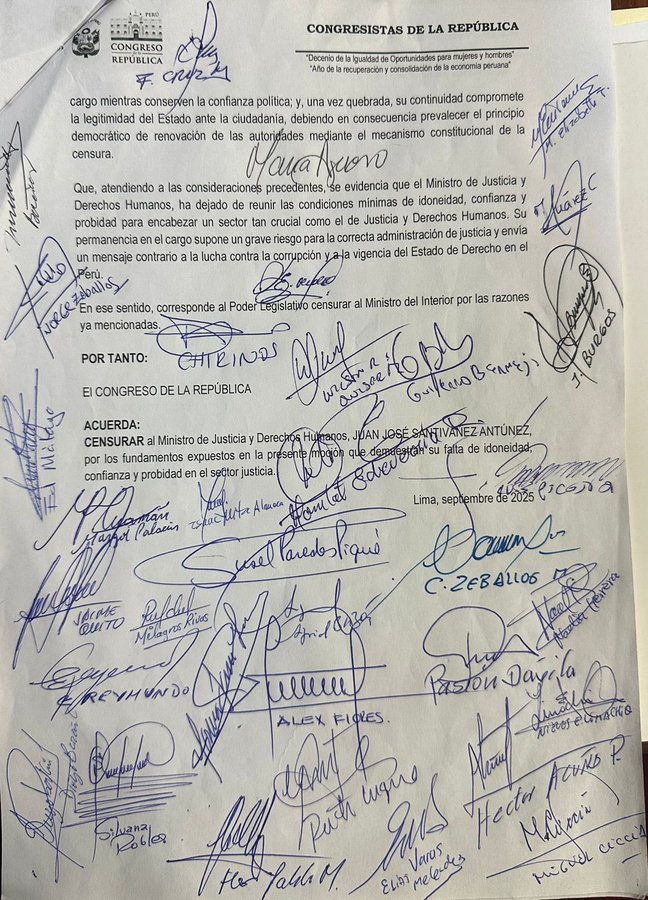 PERÚ
CONGRESO
de la
REPÚBLICA
CONGRESISTAS DE LA REPÚBLICA
"Decenio de la Igualdad de Oportunidades para mujeres y hombres"
"Año de la recuperación y consolidación de la economía peruana"
F. CRUZ M
cargo mientras conserven la confianza política; y, una vez quebrada, su continuidad compromete
la legitimidad del Estado ante la ciudadanía, debiendo en consecuencia prevalecer el principio
democrático de renovación de las autoridades mediante el mecanismo constitucional de la
censura.
M. Elizabeth T.
María Agüero
Que, atendiendo a las consideraciones precedentes, se evidencia que el Ministro de Justicia y
Derechos Humanos, ha dejado de reunir las condiciones mínimas de idoneidad, confianza y
probidad para encabezar un sector tan crucial como el de Justicia y Derechos Humanos. Su
permanencia en el cargo supone un grave riesgo para la correcta administración de justicia y envía
un mensaje contrario a la lucha contra la corrupción y a la vigencia del Estado de Derecho en el
Perú.
Juárez C
Jorge Zeballos
En ese sentido, corresponde al Poder Legislativo censurar al Ministro del Interior por las razones
ya mencionadas.
POR TANTO:
CHIRINOS
Guillermo Bermejo
J. BURGOS
El CONGRESO DE LA REPÚBLICA
ACUERDA:
CENSURAR al Ministro de Justicia y Derechos Humanos, JUAN JOSÉ SANTIVAÑEZ ANTÚNEZ,
por los fundamentos expuestos en la presente moción que demuestran su falta de idoneidad,
confianza y probidad en el sector justicia.
Ed Málaga
Hamlet Echeverría
Lima, septiembre de 2025
Margot Palacios
Susel Paredes Piqué
C. ZEBALLOS M
JAIME
QUITO
Milagros Rivas
E. REYMUNDO
Pasión Dávila
ALEX FLORES.
Silvana
Robles
Ruth Luque
Hector Acuña P.
Elías Varas
Meléndez
MIGUEL CICCIA